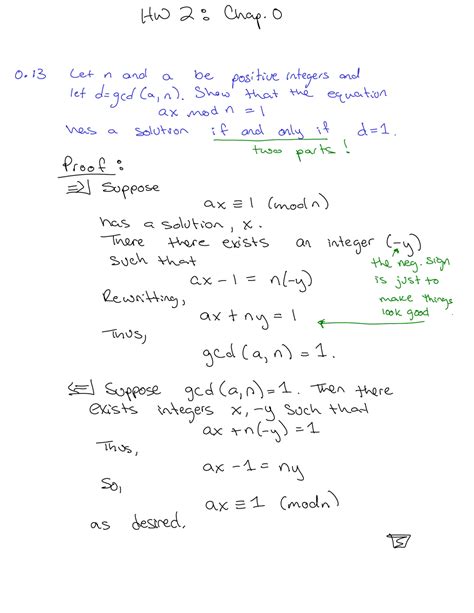 HW 2: Chap. 0
0.13 Let n and a be positive integers and
let d=gcd(a,n). Show that the equation
ax mod n = 1
has a solution if and only if d=1.
two parts!
Proof:
⇒] Suppose
ax ≡ 1 (mod n)
has a solution, x.
There there exists an integer (-y)
such that
the neg. sign
is just to
make things
look good
ax - 1 = n(-y)
Rewritting,
ax + ny = 1
Thus,
gcd(a,n) = 1.
⇐] Suppose gcd(a,n)=1. Then there
exists integers x, -y such that
ax + n(-y) = 1
Thus,
ax - 1 = ny
So,
ax ≡ 1 (mod n)
as desired.